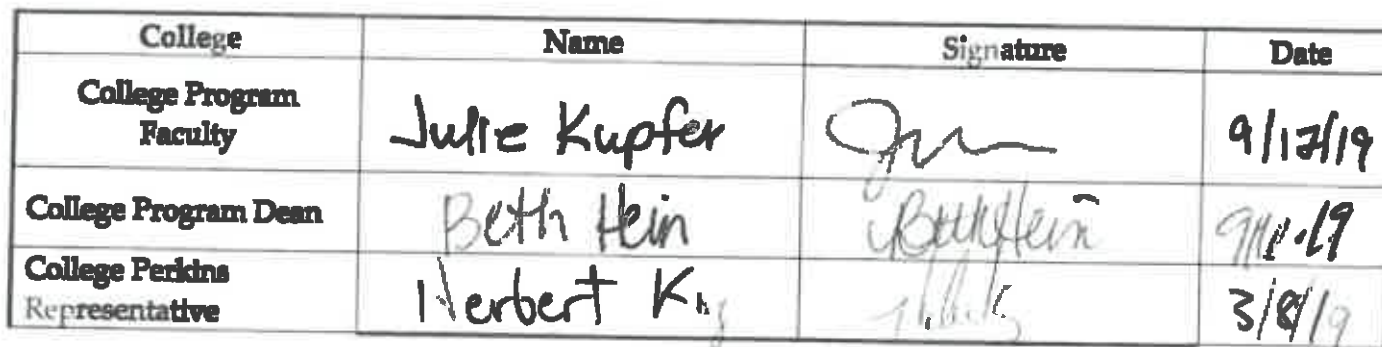 College Name Signature Date
College Program
Faculty Julie Kupfer 9/12/19
College Program Dean Beth Hein Beth Hein
College Perkins
Representative Herbert 3/8/19